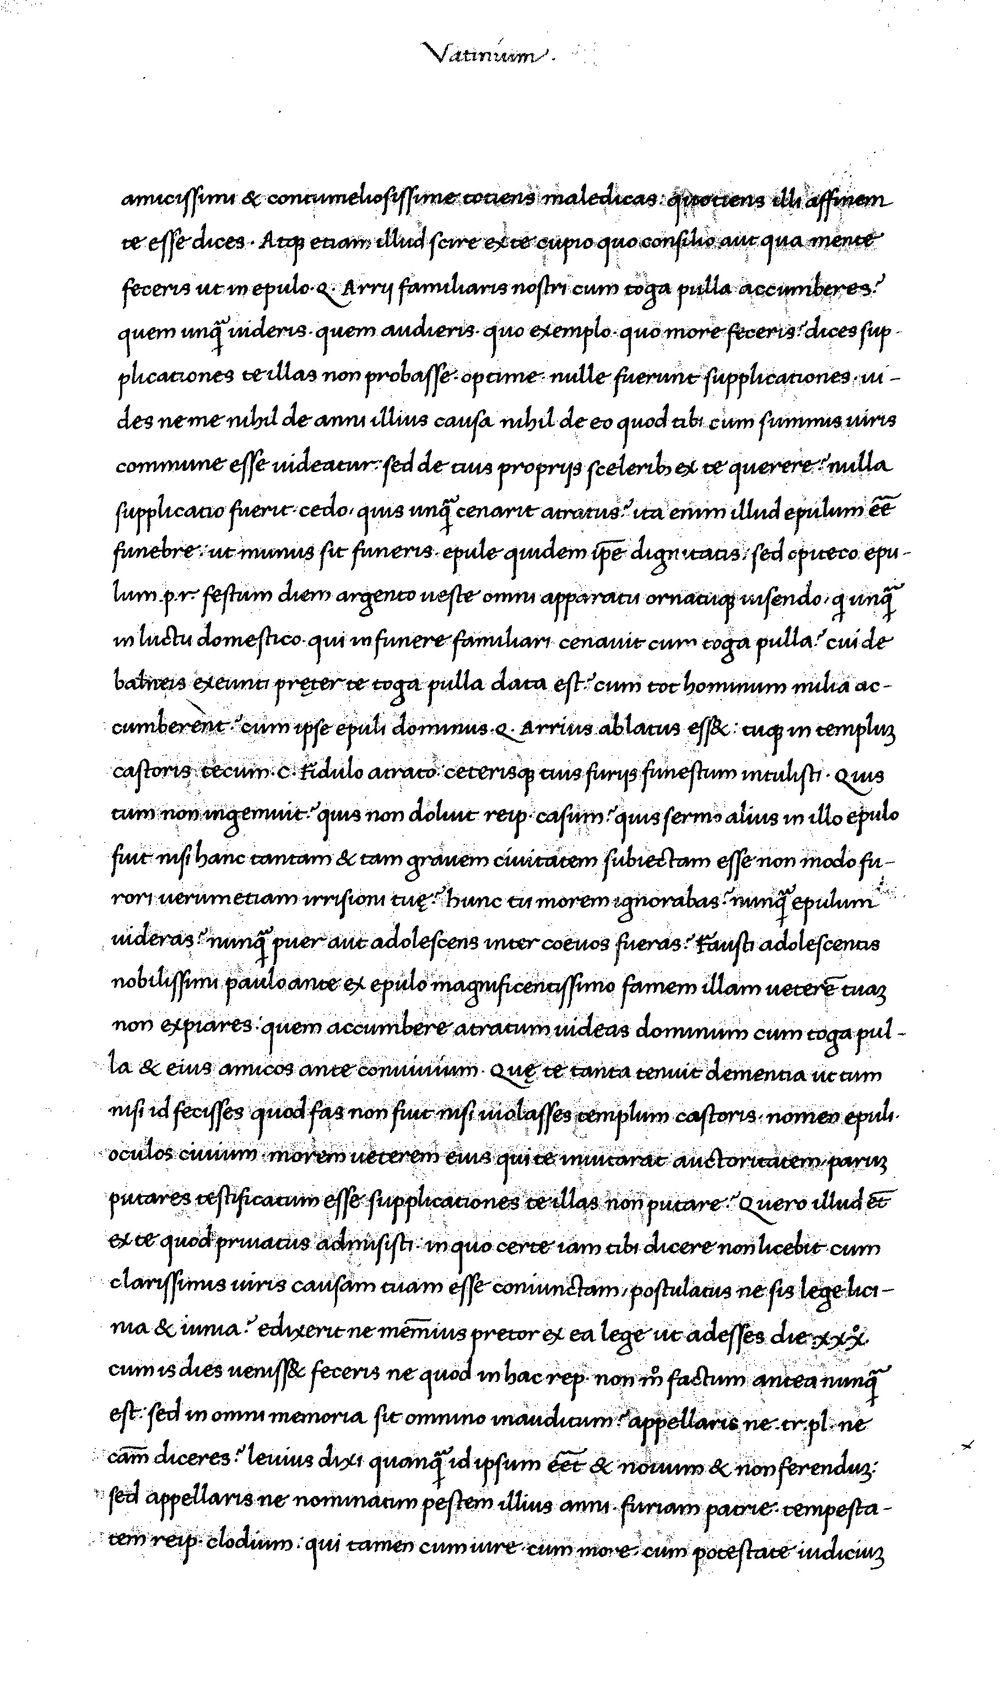 Vatinium.
amicissimi & contumeliosissime totiens maledicas: quotiens illi affinem
te esse dices. Atqꝫ etiam illud scire ex te cupio quo consilio aut qua mente
feceris ut in epulo. Q. Arrij familiaris nostri cum toga pulla accumberes?
quem unq̃ uideris. quem audieris. quo exemplo. quo more feceris? dices sup-
plicationes te illas non probasse. optime. nulle fuerunt supplicationes. ui-
des ne me nihil de anni illius causa nihil de eo quod tibi cum summis uiris
commune esse uideatur: sed de tuis proprijs sceleribꝫ ex te querere? nulla
supplicatio fuerit. cedo. quis unq̃ cenarit atratus? ita enim illud epulum eē
funebre: ut munus sit funeris. epule quidem ip̃e dignitatis. sed omitto epu-
lum .p.r. festum diem argento ueste omni apparatu ornatuqꝫ uisendo. q unq̃
in luctu domestico. qui in funere familiari cenauit cum toga pulla? cui de
balneis exeunti pręter te toga pulla data est? cum tot hominum milia ac-
cumberent? cum ipse epuli dominus. Q. Arrius ablatus ess&: tuqꝫ in templuꝫ
castoris tecum. C. Fidulo atrato. ceterisqꝫ tuis furijs funestum intulisti. Quis
tum non ingemuit? quis non doluit reip. casum? quis sermo alius in illo epulo
fuit nisi hanc tantam & tam grauem ciuitatem subiectam esse non modo fu-
rori uerumetiam irrisioni tuę? hunc tu morem ignorabas? nunq̃ epulum
uideras? nunq̃ puer aut adolescens inter coeuos fueras? Fausti adolescentis
nobilissimi paulo ante ex epulo magnificentissimo famem illam ueterē tuaꝫ
non expiares. quem accumbere atratum uideas dominum cum toga pul-
la & eius amicos ante conuiuium. Quę te tanta tenuit dementia ut tum
nisi id fecisses quod fas non fuit nisi uiolasses templum castoris. nomen epuli.
oculos ciuium. morem ueterem eius qui te inuitarat auctoritatem. paruꝫ
putares testificatum esse supplicationes te illas non putare? Quero illud et̄
ex te quod priuatus admisisti. in quo certe iam tibi dicere non licebit cum
clarissimis uiris causam tuam esse coniunctam, postulatus ne sis lege lici-
nia & iunia? edixerit ne mem̄ius pretor ex ea lege ut adesses die .xxx.
cum is dies ueniss& feceris ne quod in hac rep. non mͦ factum antea nunq̃
est. sed in omni memoria sit omnino inauditum? appellaris ne .tr.pl. ne
cam̄ diceres? leuius dixi quanq̃ id ipsum eēt & nouum & non ferenduꝫ:
sed appellaris ne nominatim pestem illius anni. furiam patrie. tempesta-
tem reip. clodium: qui tamen cum iure. cum more. cum potestate iudiciuꝫ